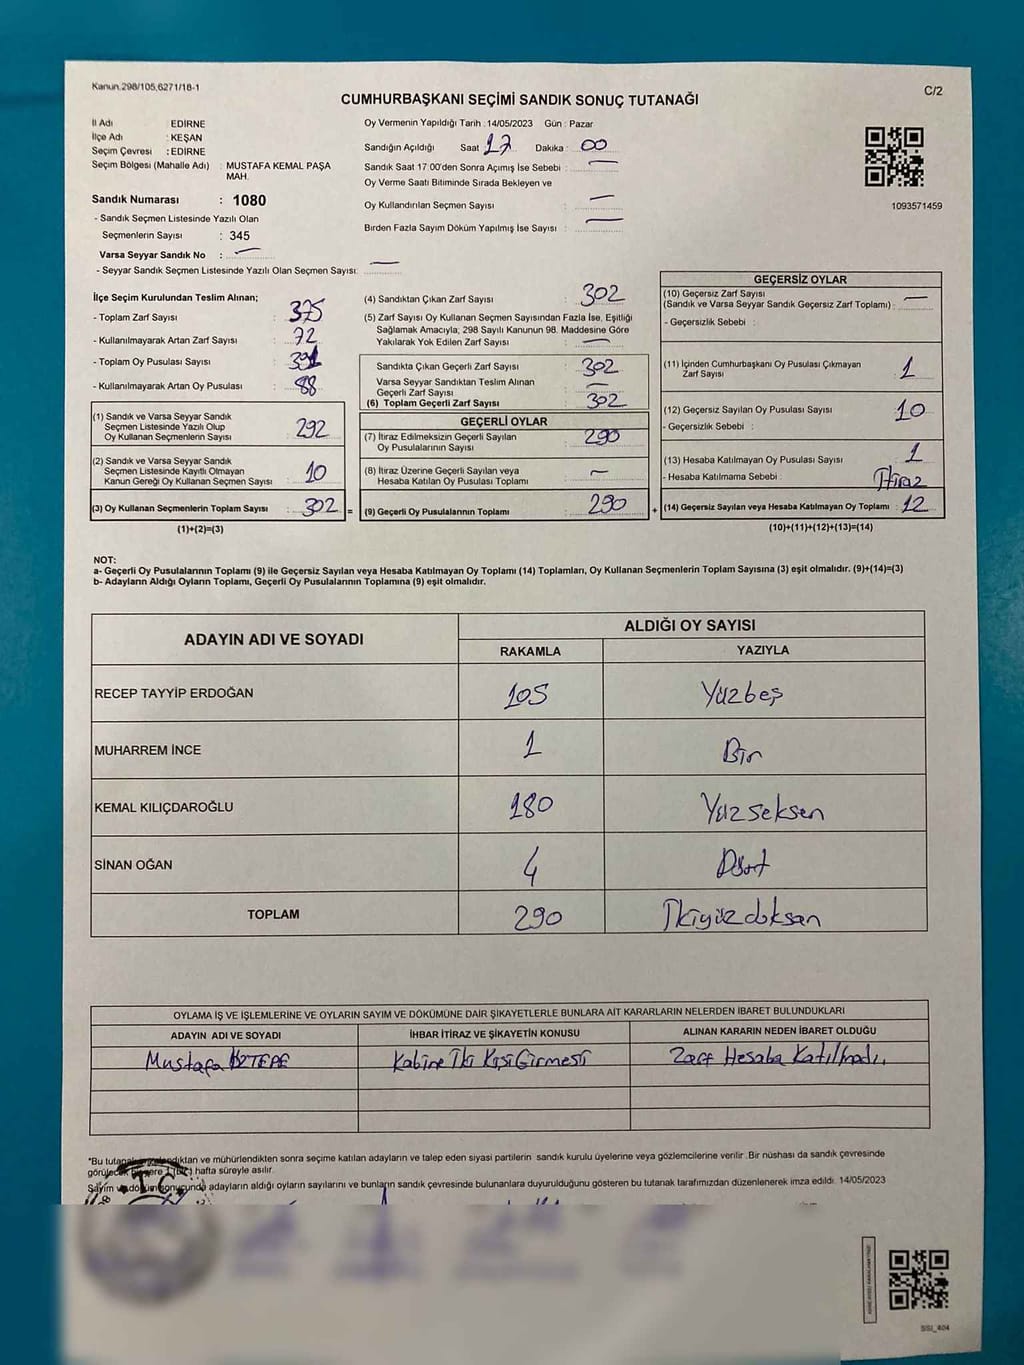 Kanun.298/105,6271/18-1
C/2
CUMHURBAŞKANI SEÇİMİ SANDIK SONUÇ TUTANAĞI
İl Adı : EDİRNE
İlçe Adı : KEŞAN
Seçim Çevresi : EDİRNE
Seçim Bölgesi (Mahalle Adı) : MUSTAFA KEMAL PAŞA
MAH.
Sandık Numarası : 1080
- Sandık Seçmen Listesinde Yazılı Olan
Seçmenlerin Sayısı : 345
Varsa Seyyar Sandık No : —
- Seyyar Sandık Seçmen Listesinde Yazılı Olan Seçmen Sayısı: —
Oy Vermenin Yapıldığı Tarih : 14/05/2023 Gün : Pazar
Sandığın Açıldığı Saat 17 Dakika : 00
Sandık Saat 17:00'den Sonra Açımış İse Sebebi : —
Oy Verme Saati Bitiminde Sırada Bekleyen ve
Oy Kullandırılan Seçmen Sayısı : —
Birden Fazla Sayım Döküm Yapılmış İse Sayısı : —
1093571459
İlçe Seçim Kurulundan Teslim Alınan;
- Toplam Zarf Sayısı : 375
- Kullanılmayarak Artan Zarf Sayısı : 72
- Toplam Oy Pusulası Sayısı :
- Kullanılmayarak Artan Oy Pusulası : 88
(1) Sandık ve Varsa Seyyar Sandık
Seçmen Listesinde Yazılı Olup
Oy Kullanan Seçmenlerin Sayısı : 292
(2) Sandık ve Varsa Seyyar Sandık
Seçmen Listesinde Kayıtlı Olmayan
Kanun Gereği Oy Kullanan Seçmen Sayısı : 10
(3) Oy Kullanan Seçmenlerin Toplam Sayısı : 302 =
(1)+(2)=(3)
(4) Sandıktan Çıkan Zarf Sayısı : 302
(5) Zarf Sayısı Oy Kullanan Seçmen Sayısından Fazla İse, Eşitliği
Sağlamak Amacıyla; 298 Sayılı Kanunun 98. Maddesine Göre
Yakılarak Yok Edilen Zarf Sayısı : —
Sandıkta Çıkan Geçerli Zarf Sayısı : 302
Varsa Seyyar Sandıktan Teslim Alınan
Geçerli Zarf Sayısı : —
(6) Toplam Geçerli Zarf Sayısı : 302
GEÇERLİ OYLAR
(7) İtiraz Edilmeksizin Geçerli Sayılan
Oy Pusulalarının Sayısı : 290
(8) İtiraz Üzerine Geçerli Sayılan veya
Hesaba Katılan Oy Pusulası Toplamı : —
(9) Geçerli Oy Pusulalarının Toplamı : 290 +
GEÇERSİZ OYLAR
(10) Geçersiz Zarf Sayısı
(Sandık ve Varsa Seyyar Sandık Geçersiz Zarf Toplamı) : —
- Geçersizlik Sebebi :
(11) İçinden Cumhurbaşkanı Oy Pusulası Çıkmayan
Zarf Sayısı : 1
(12) Geçersiz Sayılan Oy Pusulası Sayısı : 10
- Geçersizlik Sebebi :
(13) Hesaba Katılmayan Oy Pusulası Sayısı : 1
- Hesaba Katılmama Sebebi : İtiraz
(14) Geçersiz Sayılan veya Hesaba Katılmayan Oy Toplamı : 12
(10)+(11)+(12)+(13)=(14)
NOT:
a- Geçerli Oy Pusulalarının Toplamı (9) ile Geçersiz Sayılan veya Hesaba Katılmayan Oy Toplamı (14) Toplamları, Oy Kullanan Seçmenlerin Toplam Sayısına (3) eşit olmalıdır. (9)+(14)=(3)
b- Adayların Aldığı Oyların Toplamı, Geçerli Oy Pusulalarının Toplamına (9) eşit olmalıdır.
ADAYIN ADI VE SOYADI
ALDIĞI OY SAYISI
RAKAMLA YAZIYLA
RECEP TAYYİP ERDOĞAN 105 Yüzbeş
MUHARREM İNCE 1 Bir
KEMAL KILIÇDAROĞLU 180 Yüzseksen
SİNAN OĞAN 4 Dört
TOPLAM 290 İkiyüzdoksan
OYLAMA İŞ VE İŞLEMLERİNE VE OYLARIN SAYIM VE DÖKÜMÜNE DAİR ŞİKAYETLERLE BUNLARA AİT KARARLARIN NELERDEN İBARET BULUNDUKLARI
ADAYIN ADI VE SOYADI İHBAR İTİRAZ VE ŞİKAYETİN KONUSU ALINAN KARARIN NEDEN İBARET OLDUĞU
Mustafa Kabine İki Kişi Girmesi Zarf Hesaba Katılmadı.
*Bu tutanak düzenlendiktan ve mühürlendikten sonra seçime katılan adayların ve talep eden siyasi partilerin sandık kurulu üyelerine veya gözlemcilerine verilir. Bir nüshası da sandık çevresinde
görülecek bir yere 1 (bir) hafta süreyle asılır.
Sayım ve döküm sonucunda adayların aldığı oyların sayılarını ve bunların sandık çevresinde bulunanlara duyurulduğunu gösteren bu tutanak tarafımızdan düzenlenerek imza edildi. 14/05/2023
T.C.
SSI_404